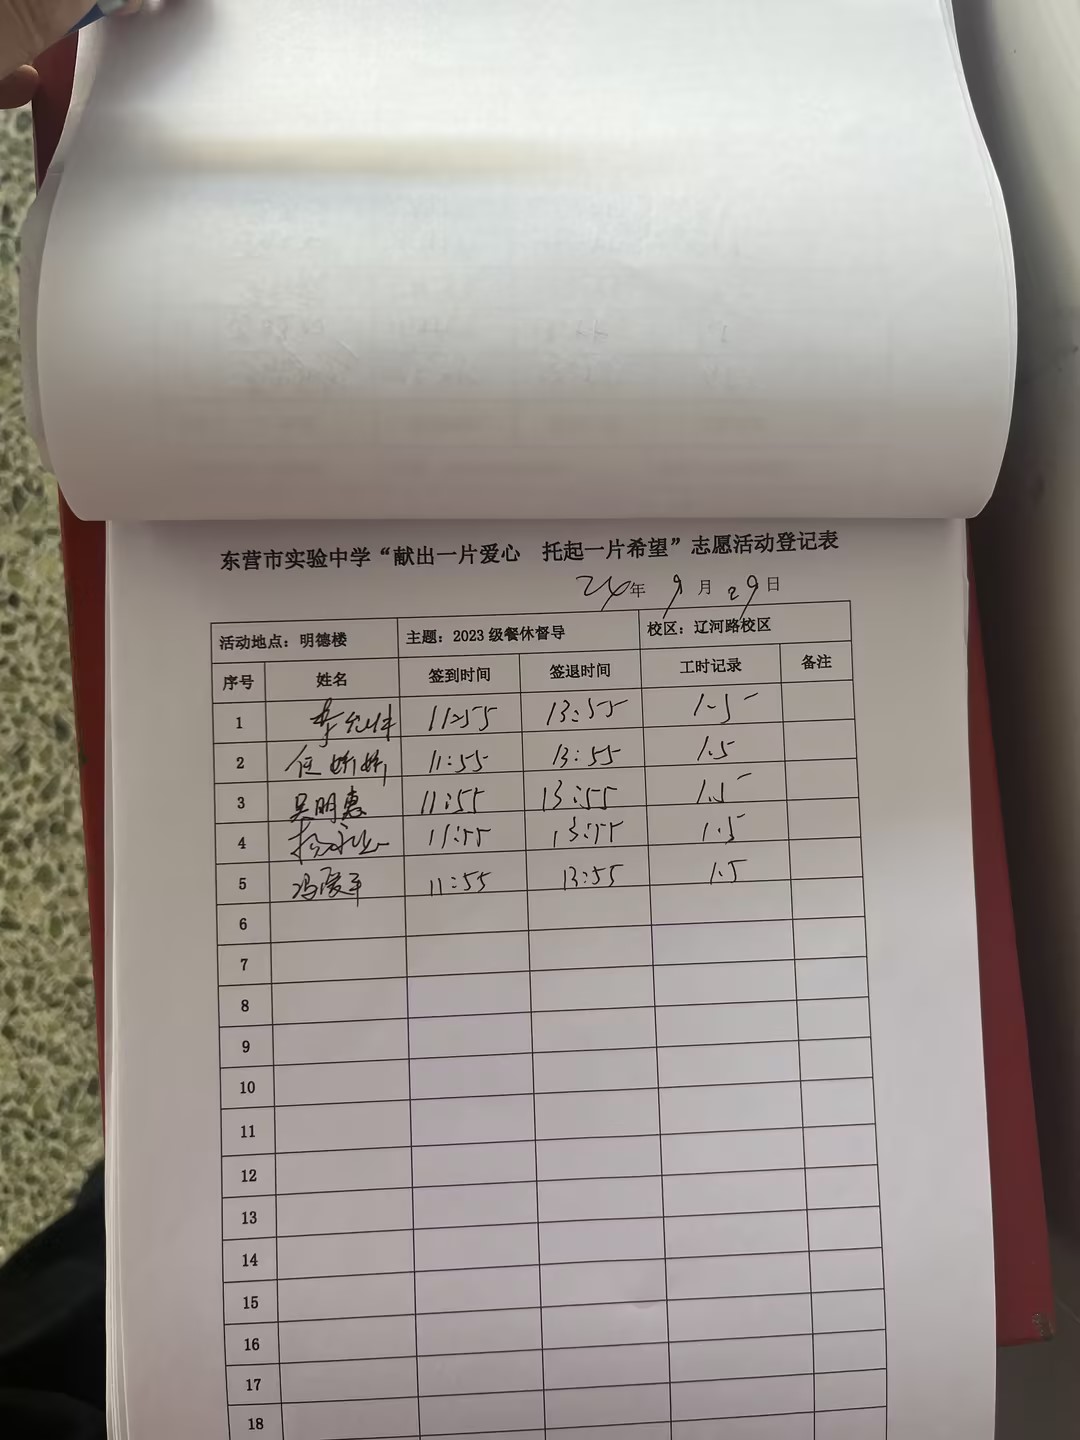 东营市实验中学“献出一片爱心 托起一片希望”志愿活动登记表
24年9月29日
活动地点：明德楼 主题：2023级餐休督导 校区：辽河路校区
序号 姓名 签到时间 签退时间 工时记录 备注
1 11:55 13:55 1.5
2 任娇娇 11:55 13:55 1.5
3 吴明惠 11:55 13:55 1.5
4 11:55 13:55 1.5
5 11:55 13:55 1.5
6
7
8
9
10
11
12
13
14
15
16
17
18